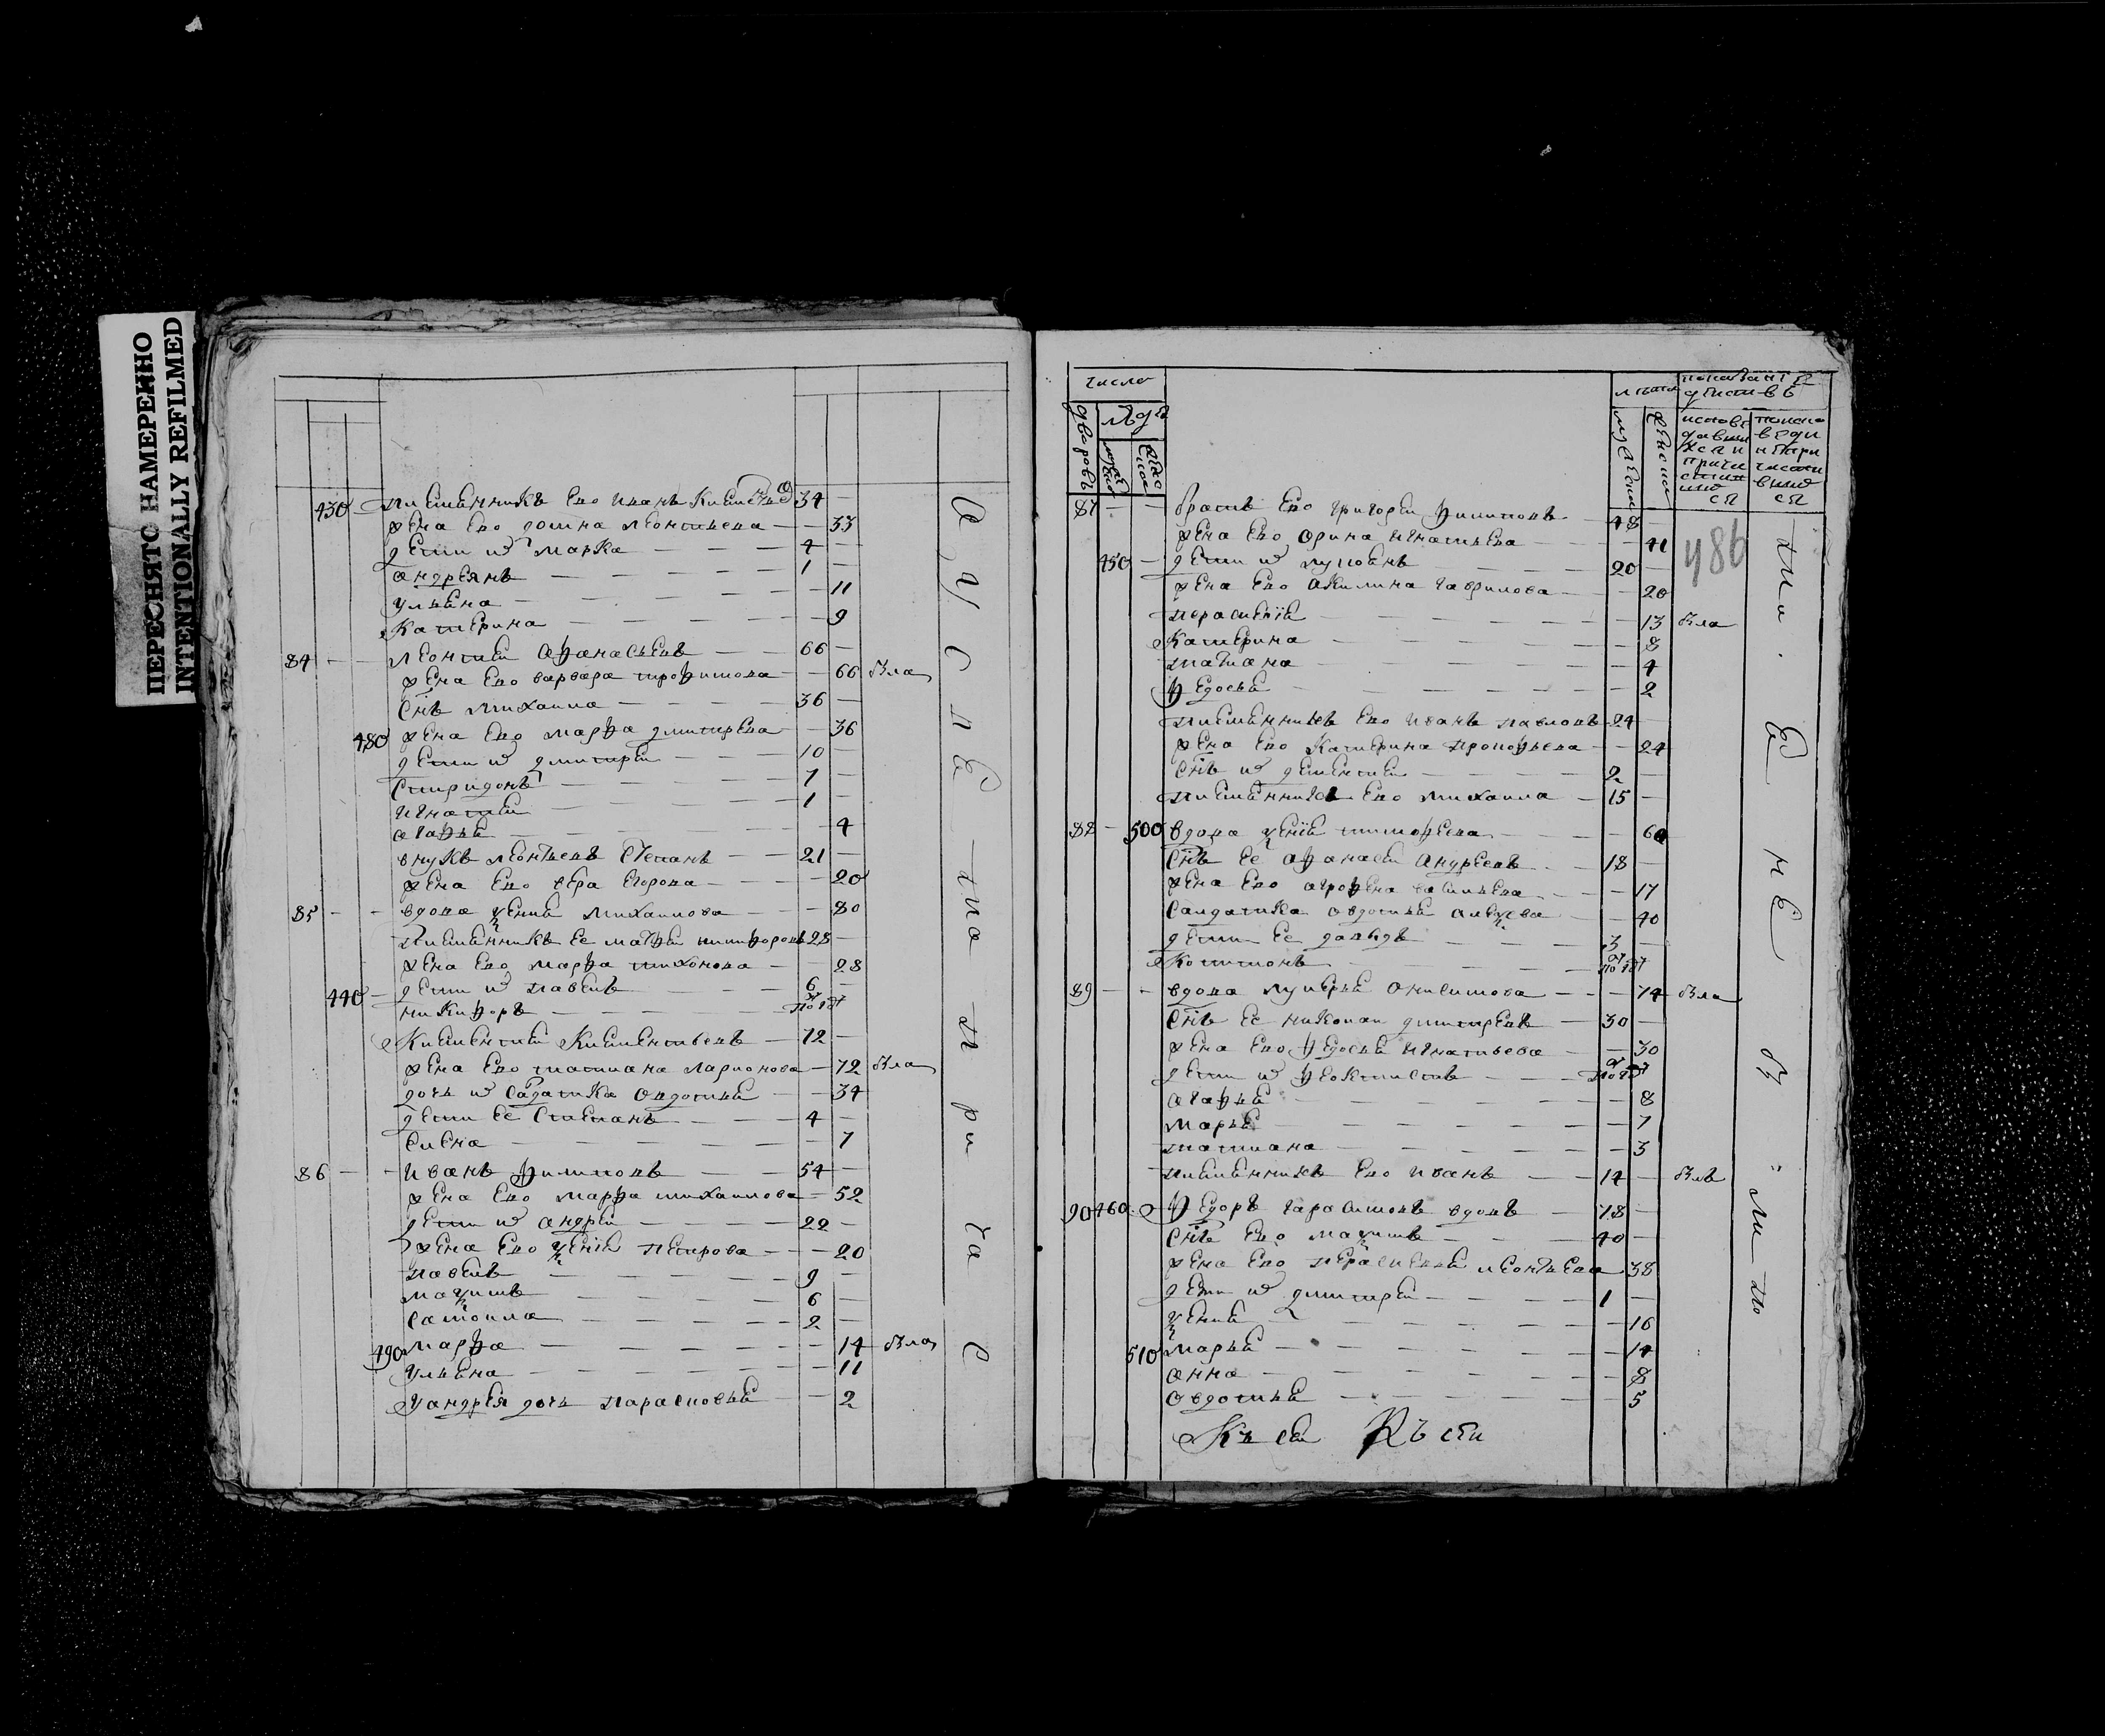 ПЕРЕСНЯТО НАМЕРЕННО
INTENTIONALLY REFILMED
430 племянникъ ево иванъ 34
жена ево домна леонтьева 33
дети их марка 4
андреянъ 1
ульяна 11
катерина 9
84 леонтей афанасьевъ 66
жена ево варвара трофимова 66 была
снъ михаила 36
480 жена ево марфа дмитрева 36
дети их дмитрей 10
спиридонъ 7
игнатей 1
агафья 4
внукъ леонтьевъ степанъ 21
жена ево вера егорова 20
85 вдова ксения михаилова 80
племянникъ ее матфей никифоровъ 28
жена ево марфа тихонова 28
440 дети их павелъ 6
никифоръ по год
климентей климентьевъ 72
жена ево татиана ларионова 72 была
дочь их салдатка овдотья 34
дети ее степанъ 4
елена 7
86 иванъ филиповъ 54
жена ево марфа михаилова 52
дети их андрей 22
жена ево ксения петрова 20
павелъ 9
максимъ 6
самоила 2
490 марфа 14 была
ульяна 11
у андрея дочь парасковья 2
число
дворовъ
людей
мужеска
женска
лета
мужеские
женские
показание действъ
исповедавшихся и причастившихся
исповедавшихся и не причастившихся
486
87 братъ ево григорей филиповъ 48
жена ево орина игнатьева 41
450 дети их лукьянъ 20
жена ево акилина гаврилова 20
13 была
катерина 8
татиана 4
федосья 2
племянникъ ево иванъ павловъ 24
жена ево катерина прокофьева 24
снъ их дементей 2
племянникъ ево михаила 15
88 500 вдова ксения тимофеева 60
снъ ее афанасей андреевъ 18
жена ево агрофена васильева 17
салдатка овдотья алексеева 40
дети ее давыдъ 3
по год
89 вдова лукерья онисимова 74 была
снъ ее николаи дмитревъ 30
жена ево федосья игнатьева 30
дети их феоктистъ по год
агафья 8
марья 7
татиана 3
племянникъ ево иванъ 14 былъ
90 460 федоръ гарасимовъ вдовъ 78
снъ ево максимъ 40
жена ево леонтьева 38
дети их дмитрей 1
ксения 16
510 марья 14
анна 8
овдотья 5